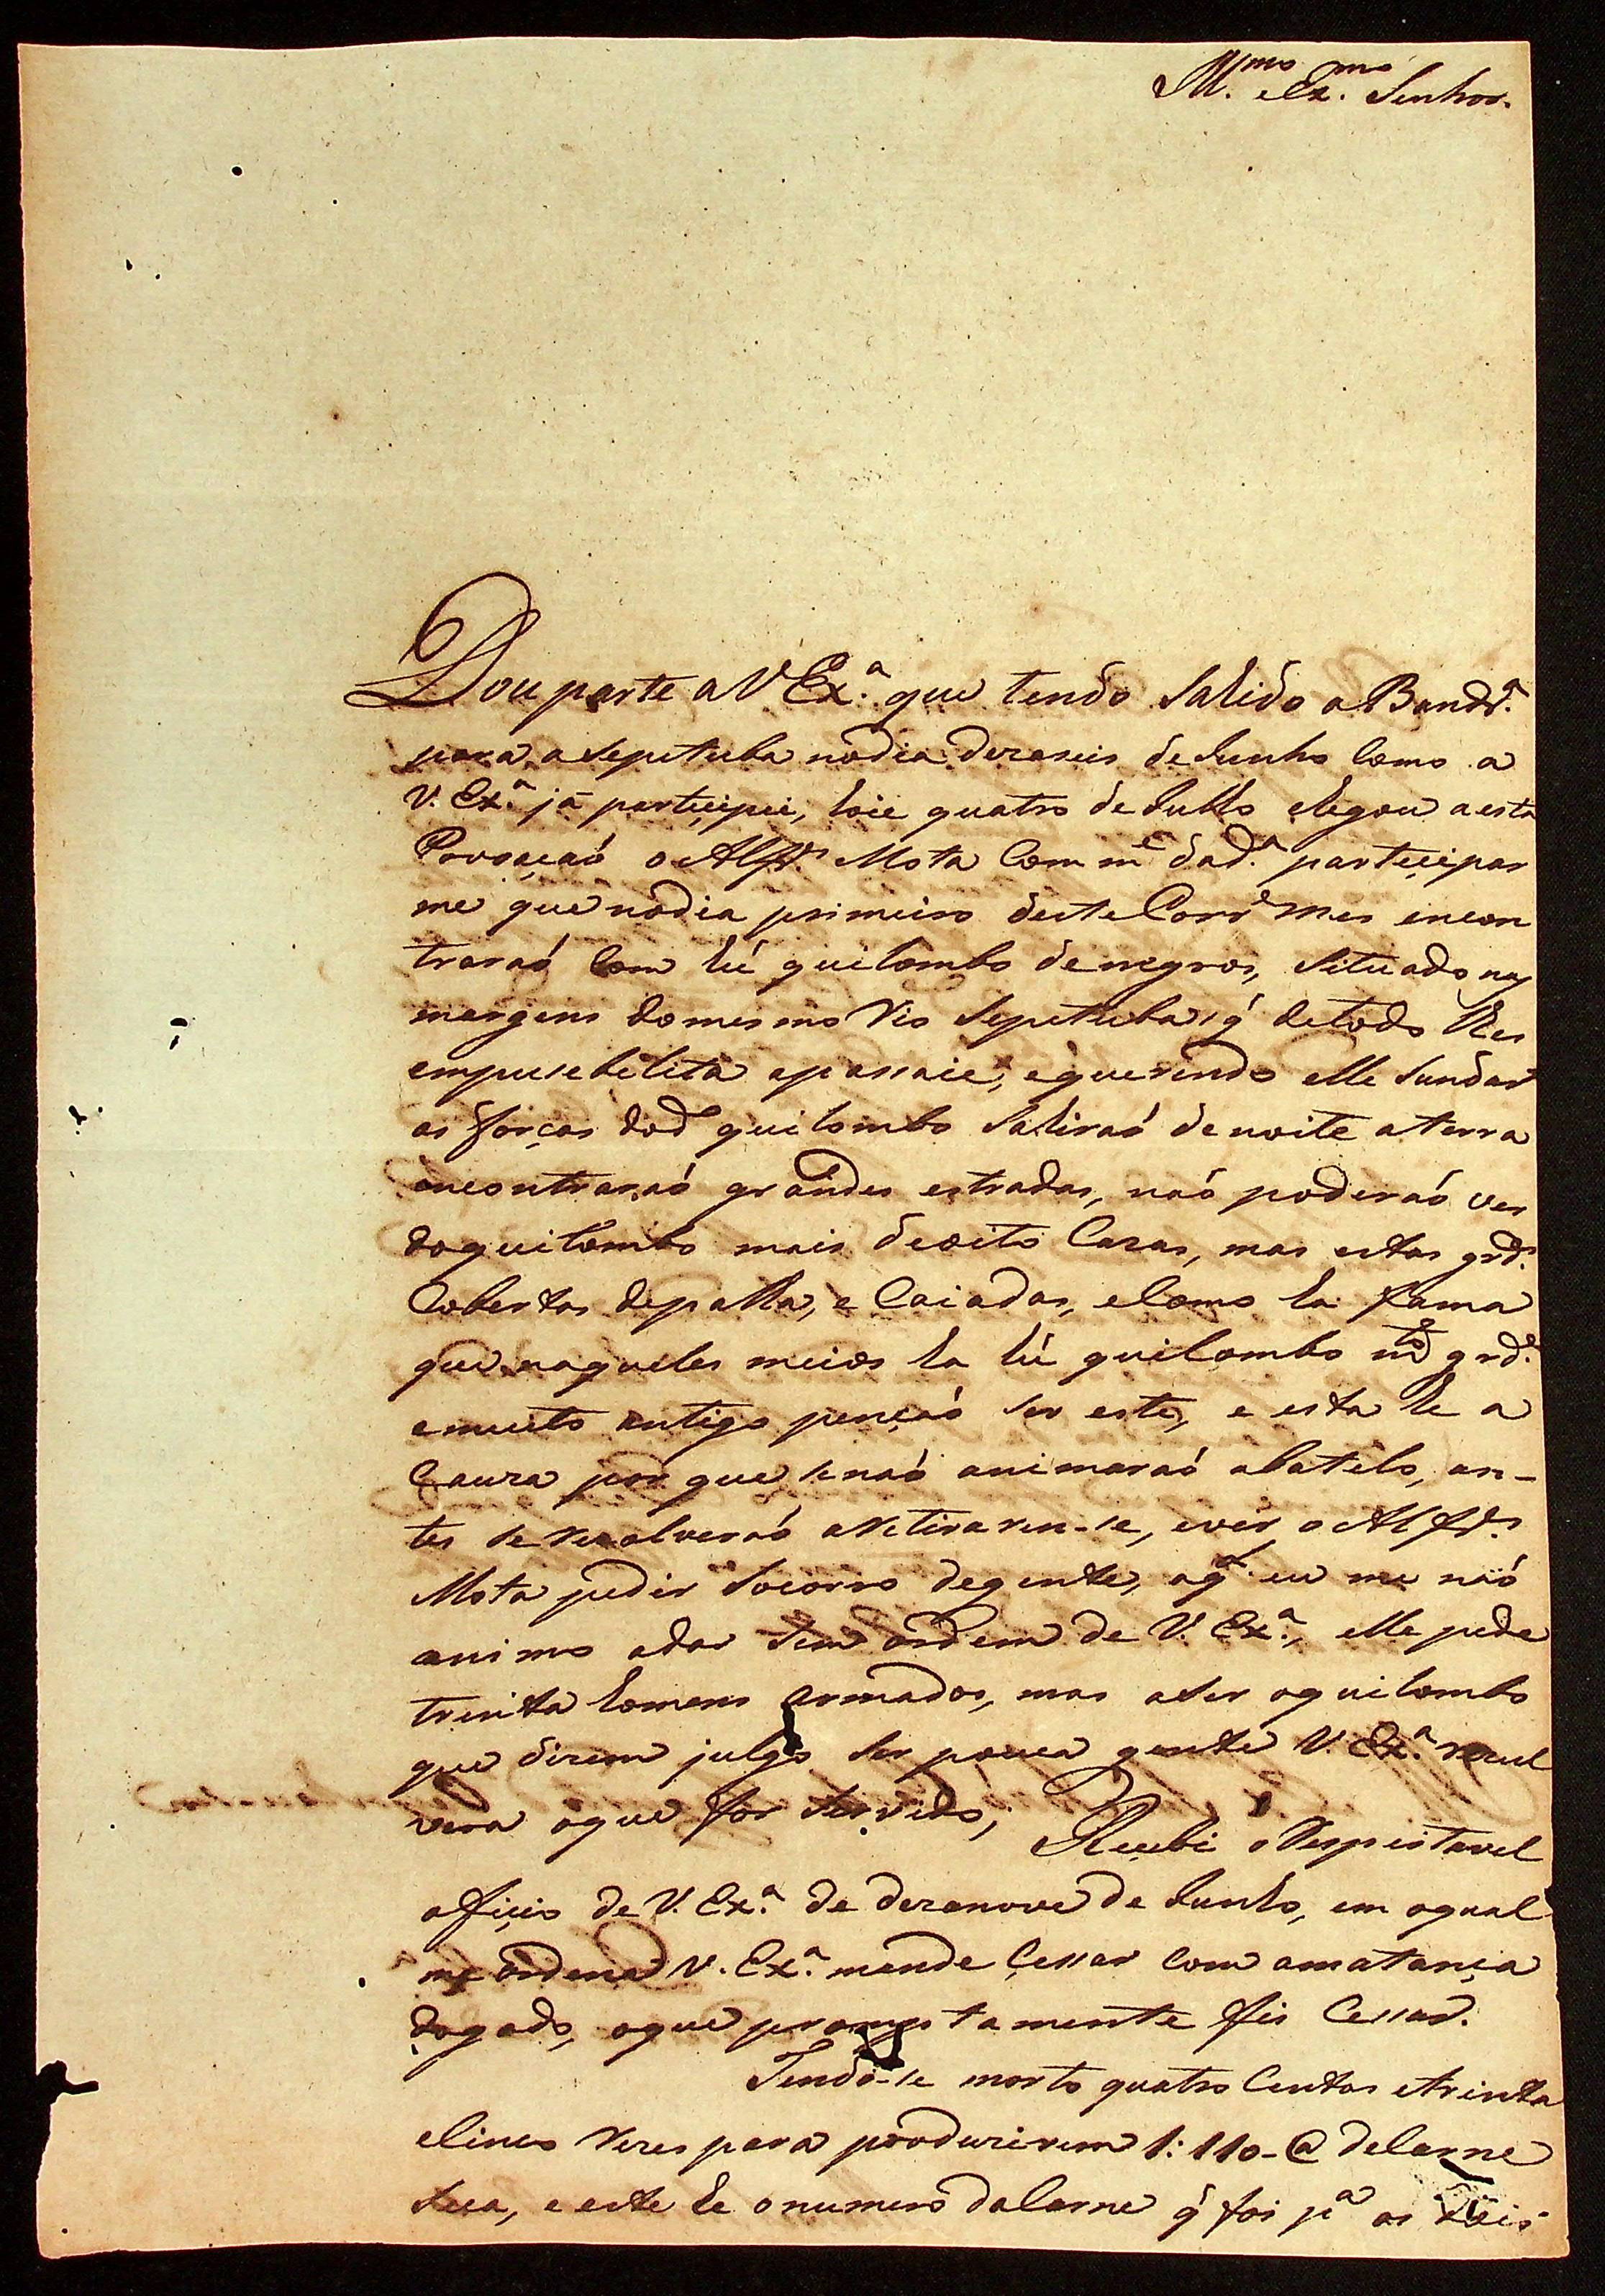 Ill.mo e Ex.mo Senhor.
Dou parte a V Ex.ª que tendo Sahido a Bandr.ª
para a Seputuba nodia dezaseis de Junho Como a
V. Ex.ª já partiçipei, hoie quatro de Julho chegou a esta
Povoaçaó o Alfr.s Mota Com m.e dad.ª partiçipar
me que nodia primeiro deste Corr.e Mes encon
traraó Com hú quilombo denegros, Situado nas
margens domesmo Rio Seputuba, q̃ detodo lhes
empusebelita apassaie, equerendo elle Sundar
as forças dod.o quilombo Sahiraó de noite aterra
encontraraó grandes estradas, naó poderaó ver
doquilombo mais deoito Cazas, mas estas grd.s
Cobertas depalha, e Caiadas, eComo ha fama
que naqueles meios ha hú quilombo m.to grd.e
emuito antigo pençaó ser este, e esta he a
Cauza por que senaó animaraó abatelo, an-
tes se rezolveraó aRetirarem-se, evir o Alfr.s
Mota pedir Socorro degente, oq.l eu me naó
animo adar Sem ordem de V. Ex.ª, elle pede
trinta homens armados, mas aser oquilombo
que dizem julgo ser pouca gente V. Ex.ª rezol
vera oque for Servido;
Reçebi oRespeitavel
ofiçio de V. Ex.ª de dezanove de Junho, em oqual
me ordena V. Ex.ª mande Çessar Com amatança
dogado, oque promptamente fis Cessar.
Tendo-se morto quatro Centas etrinta
eCinco Rezes para produzirem 1:110-@ deCarne
seca, e este he onumero daCarne q̃ foi p.ª os